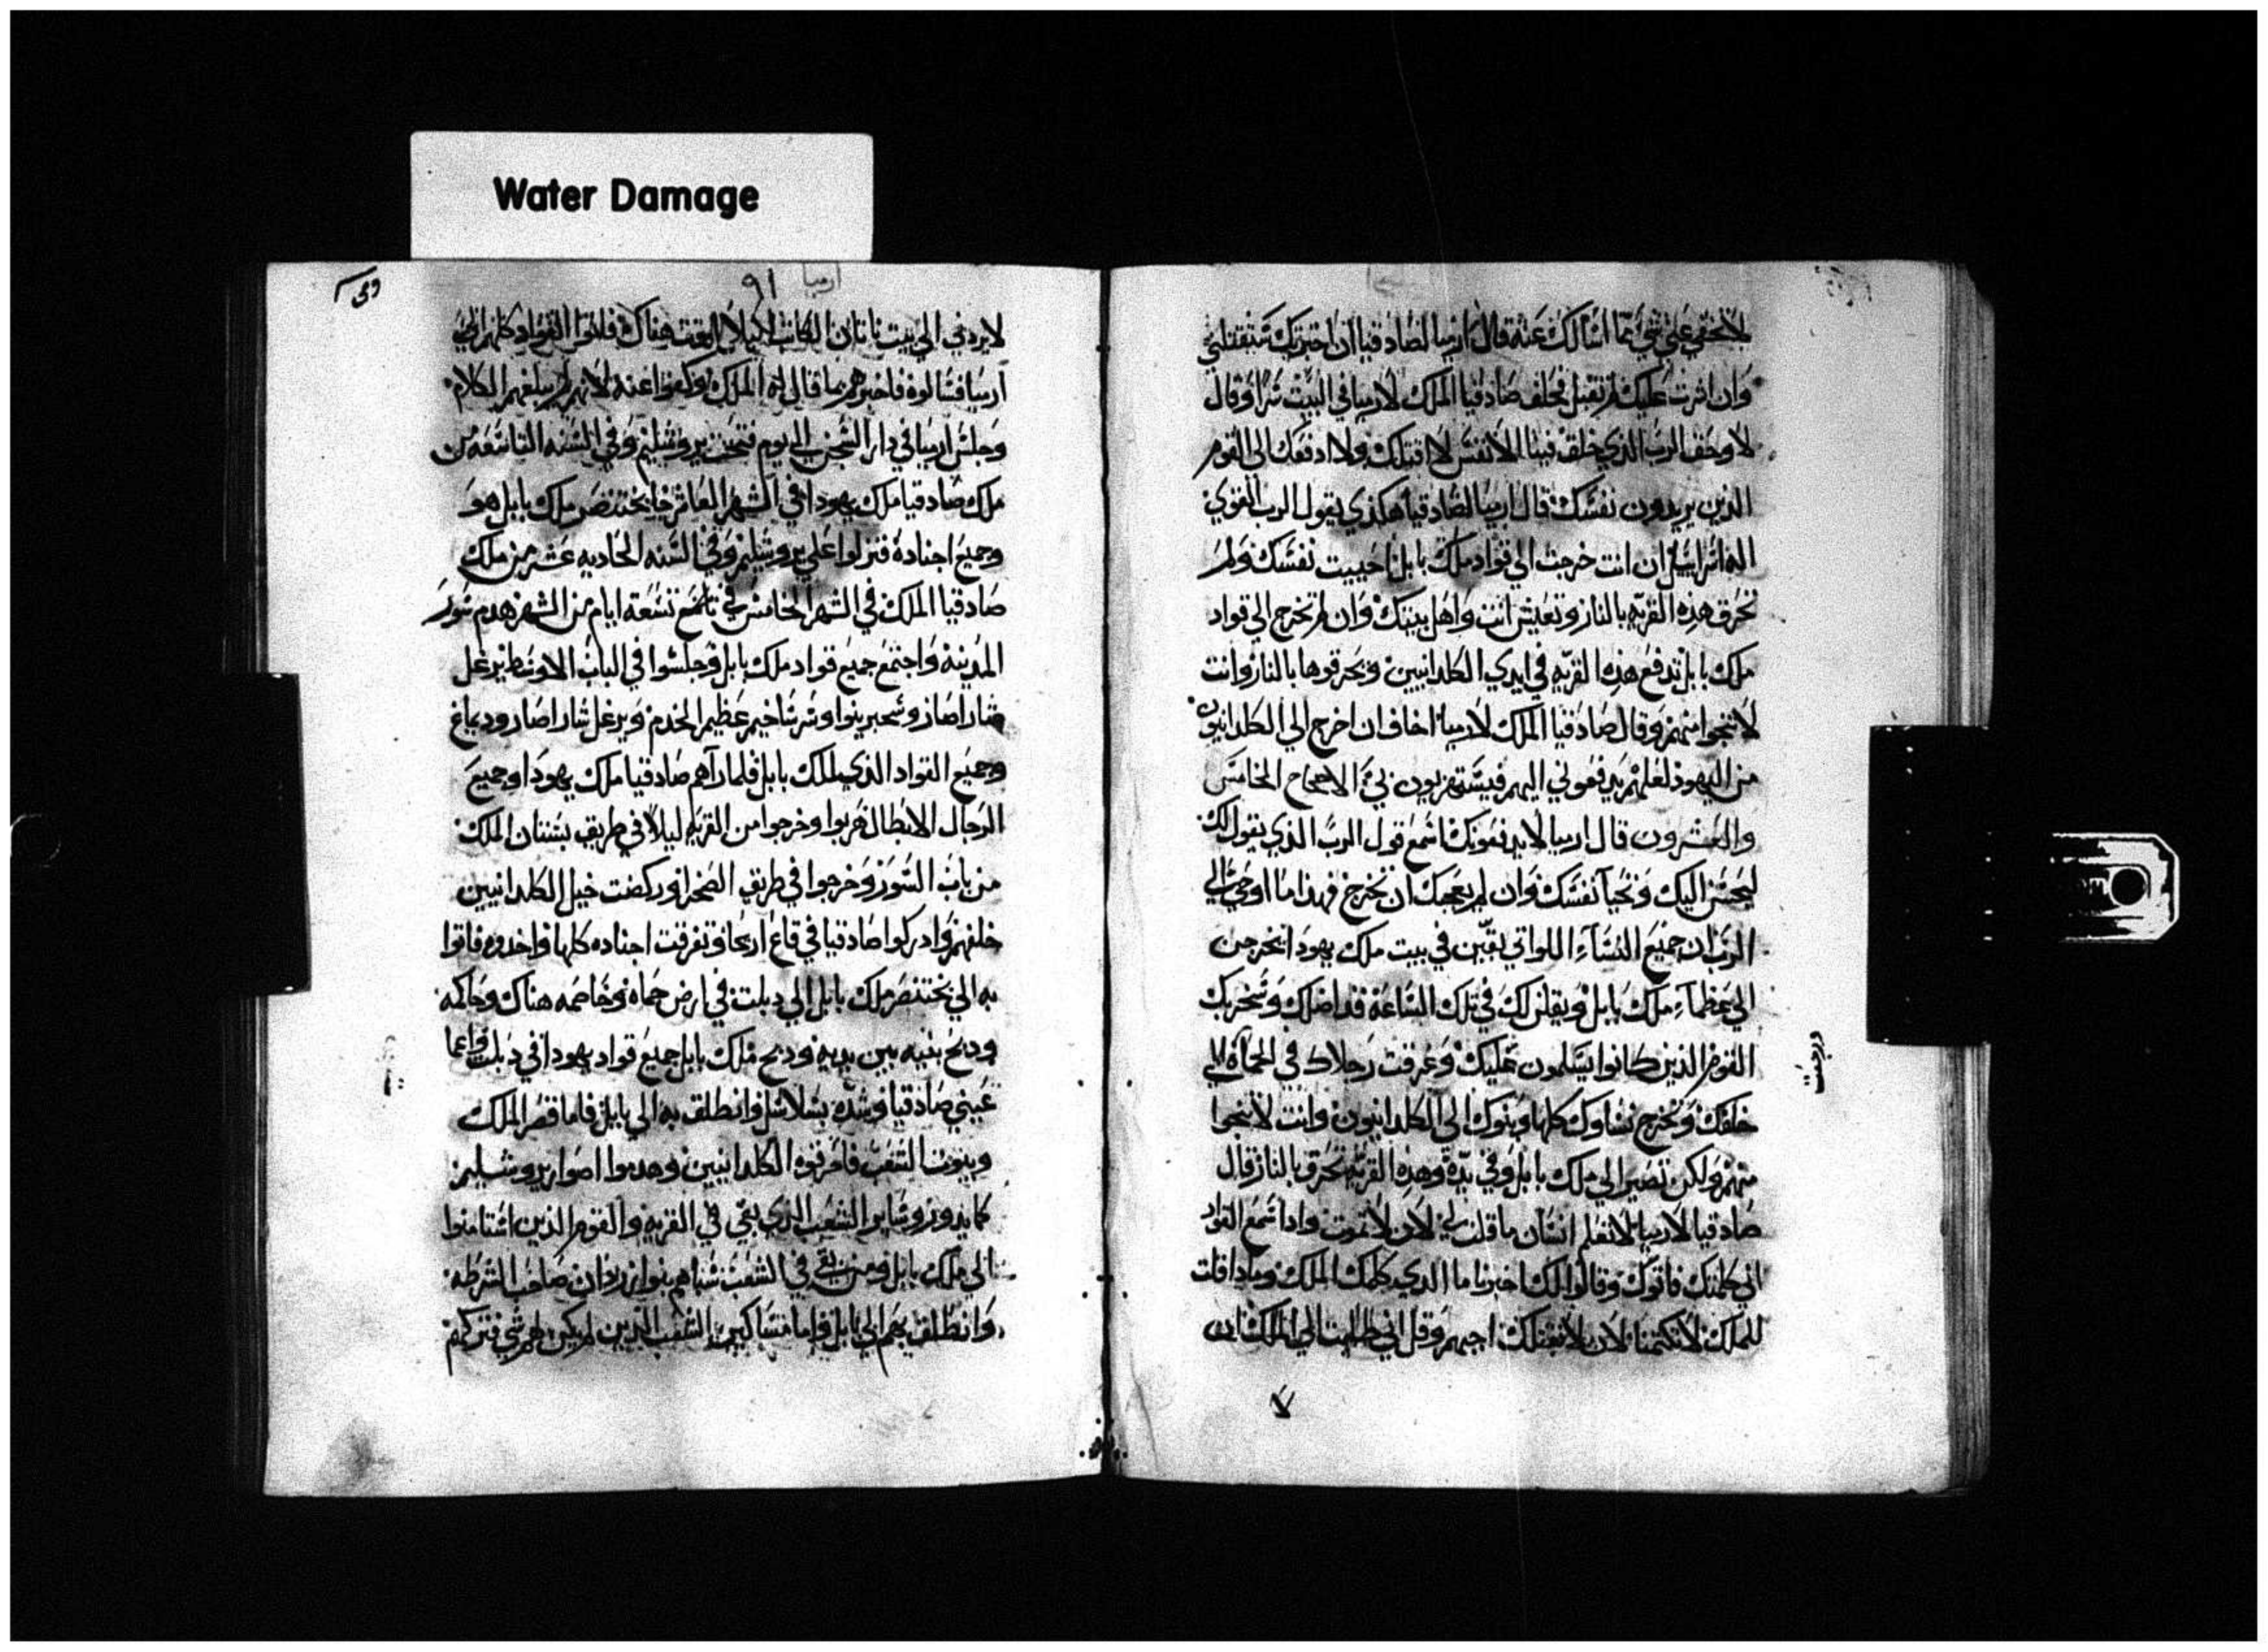 Water Damage
لا تخفي علي شي مما اسالك عنه قال ارميا لصادقيا ان اخبرتك ستقتلني
وان اشرت عليك لم تقبل فحلف صادقيا الملك لارميا في البيت سرا وقال
لا وحق الرب الذي خلق فينا الانفس لا اقتلك ولا ادفعك الي القوم
الذين يريدون نفسك قال ارميا لصادقيا هكذي يقول الرب القوي
اله اسراييل ان انت خرجت الي قواد ملك بابل احييت نفسك ولم
تحرق هذه القريه بالنار وتعيش انت واهل بيتك وان لم تخرج الي قواد
ملك بابل تدفع هذه القريه في ايدي الكلدانيين ويحرقوها بالنار وانت
لا تنجوا منهم وقال صادقيا الملك لارميا اخاف ان اخرج الي الكلدانيون
من اليهود لعلهم يدفعوني اليهم فيستهزيون بي الاصحاح الخامس
والعشرون قال ارميا لا يدفعونك اسمع قول الرب الذي يقول لك
ليحسن اليك وتحيا نفسك وان لم يعجبك ان تخرج فهذا ما اوحي الي
الرب ان جميع النساء اللواتي بقين في بيت ملك يهودا يخرجن
الي عظماء ملك بابل ويقلن لك في تلك الساعه قد اضلك وسخر بك
القوم الذين كانوا يسلمون عليك وغرقت رجلاك في الحماه الي
خلفك وتخرج نساوك كلها وبنوك الي الكلدانيون وانت لا تنجوا
منهم ولكن تصير الي ملك بابل وفي يده وهذه القريه تحرق بالنار قال
صادقيا لارميا لا تعلم انسان ما قلت لي لان لا تموت واذا سمع القواد
اني كلمتك فاتوك وقالوا لك اخبرنا ما الذي كلمك الملك وماذا قلت
للملك لا تكتمنا لان لا نقتلك اجبهم وقل اني طلبت الي الملك ان
ارميا
٩١
لا يردني الي بيت ناتان الكاتب ليلا اموت هناك فاتوا القواد كلهم الي
ارميا فسالوه فاخبرهم بما قال له الملك وكفوا عنه لانهم لم يبلغهم الكلام
وجلس ارميا في دار السجن الي يوم فتحت يروشليم وفي السنه التاسعه من
ملك صادقيا ملك يهودا في الشهر العاشر جا بختنصر ملك بابل هو
وجميع اجناده فنزلوا علي يروشليم وفي السنه الحاديه عشر من ملك
صادقيا الملك في الشهر الخامس في تسعة ايام من الشهر هدم سور
المدينه واجتمع جميع قواد ملك بابل وجلسوا في الباب الاوسط نرغل
شاراصار وسحبرينوا وسرساخيم عظيم الخدم ونرغل شاراصار ودبماغ
وجميع القواد الذي لملك بابل فلما رآهم صادقيا ملك يهودا وجميع
الرجال الابطال هربوا وخرجوا من القريه ليلا في طريق بستان الملك
من باب السور وخرجوا في طريق الصحرا وركضت خيل الكلدانيين
خلفهم وادركوا صادقيا في قاع اريحا وتفرقت اجناده كلها واخذوه فاتوا
به الي بختنصر ملك بابل الي دبلت في ارض حماه وخاصمه هناك وحاكمه
وذبح بنيه بين يديه وذبح ملك بابل جميع قواد يهودا في دبلت واعما
عيني صادقيا وشده بسلاسل وانطلق به الي بابل فاما قصر الملك
وبيوت الشعب فاحرقوه الكلدانيين وهدموا اصوار يروشليم
كما يدور وساير الشعب الذي بقي في القريه والقوم الذين استامنوا
الي ملك بابل ومن بقي في الشعب سباهم بنوازردان صاحب الشرطه
وانطلق بهم الي بابل واما مساكين الشعب الذين لم يكن لهم شي فتركهم